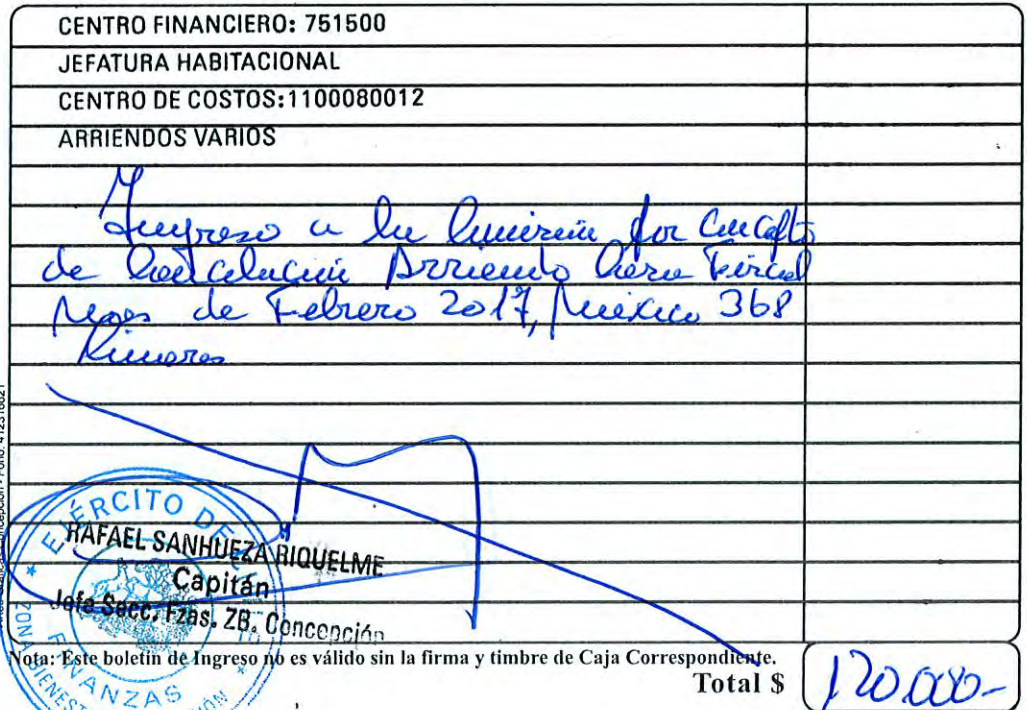 CENTRO FINANCIERO: 751500
JEFATURA HABITACIONAL
CENTRO DE COSTOS:1100080012
ARRIENDOS VARIOS
Ingreso a la por Concepto
de Arriendo
Mes de Febrero 2017, Mexico 368
EJÉRCITO DE
RAFAEL SANHUEZA RIQUELME
Capitán
Jefe Secc. Fzas. ZB. Concepción
FINANZAS
Nota: Este boletín de Ingreso no es válido sin la firma y timbre de Caja Correspondiente.
Total $ 120.000-